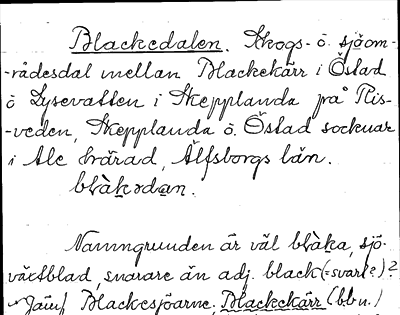 Blackedalen. Skogs- o. sjöom-
-rådesdal mellan Blackekärr i Östad
o Lysevatten i Skepplanda på Ris-
-veden, Skepplanda o. Östad socknar
i Ale härad, Älfsborgs län.
blàkədan.
Namngrunden är väl blàka, sjö-
växtblad, snarare än adj. black (=svart?)?
Jämf Blackesjöarne, Blackekärr (bbn.)